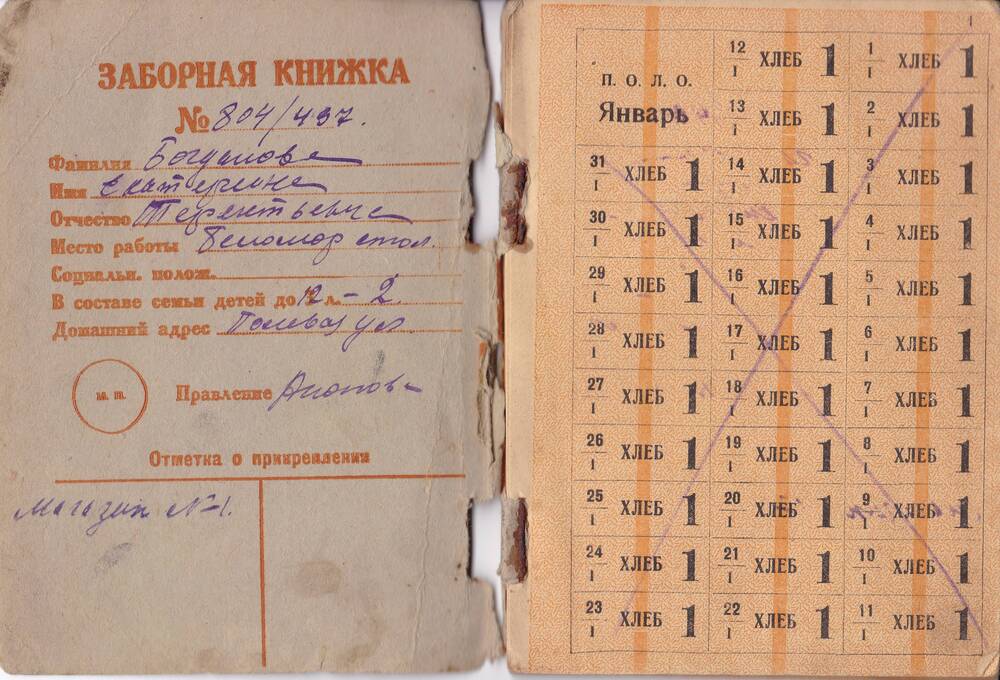 ЗАБОРНАЯ КНИЖКА
№ 804/497.
Фамилия Богданова
Имя Екатерина
Отчество Терентьевна
Место работы Беломор стол.
Социальн. полож.
В составе семьи детей до 12 л. – 2.
Домашний адрес Полевая ул
м. п.
Правление
Отметка о прикреплении
Магазин №1.
П. О. Л. О.
Январь
12/I ХЛЕБ 1 1/I ХЛЕБ 1
13/I ХЛЕБ 1 2/I ХЛЕБ 1
31/I ХЛЕБ 1 14/I ХЛЕБ 1 3/I ХЛЕБ 1
30/I ХЛЕБ 1 15/I ХЛЕБ 1 4/I ХЛЕБ 1
29/I ХЛЕБ 1 16/I ХЛЕБ 1 5/I ХЛЕБ 1
28/I ХЛЕБ 1 17/I ХЛЕБ 1 6/I ХЛЕБ 1
27/I ХЛЕБ 1 18/I ХЛЕБ 1 7/I ХЛЕБ 1
26/I ХЛЕБ 1 19/I ХЛЕБ 1 8/I ХЛЕБ 1
25/I ХЛЕБ 1 20/I ХЛЕБ 1 9/I ХЛЕБ 1
24/I ХЛЕБ 1 21/I ХЛЕБ 1 10/I ХЛЕБ 1
23/I ХЛЕБ 1 22/I ХЛЕБ 1 11/I ХЛЕБ 1